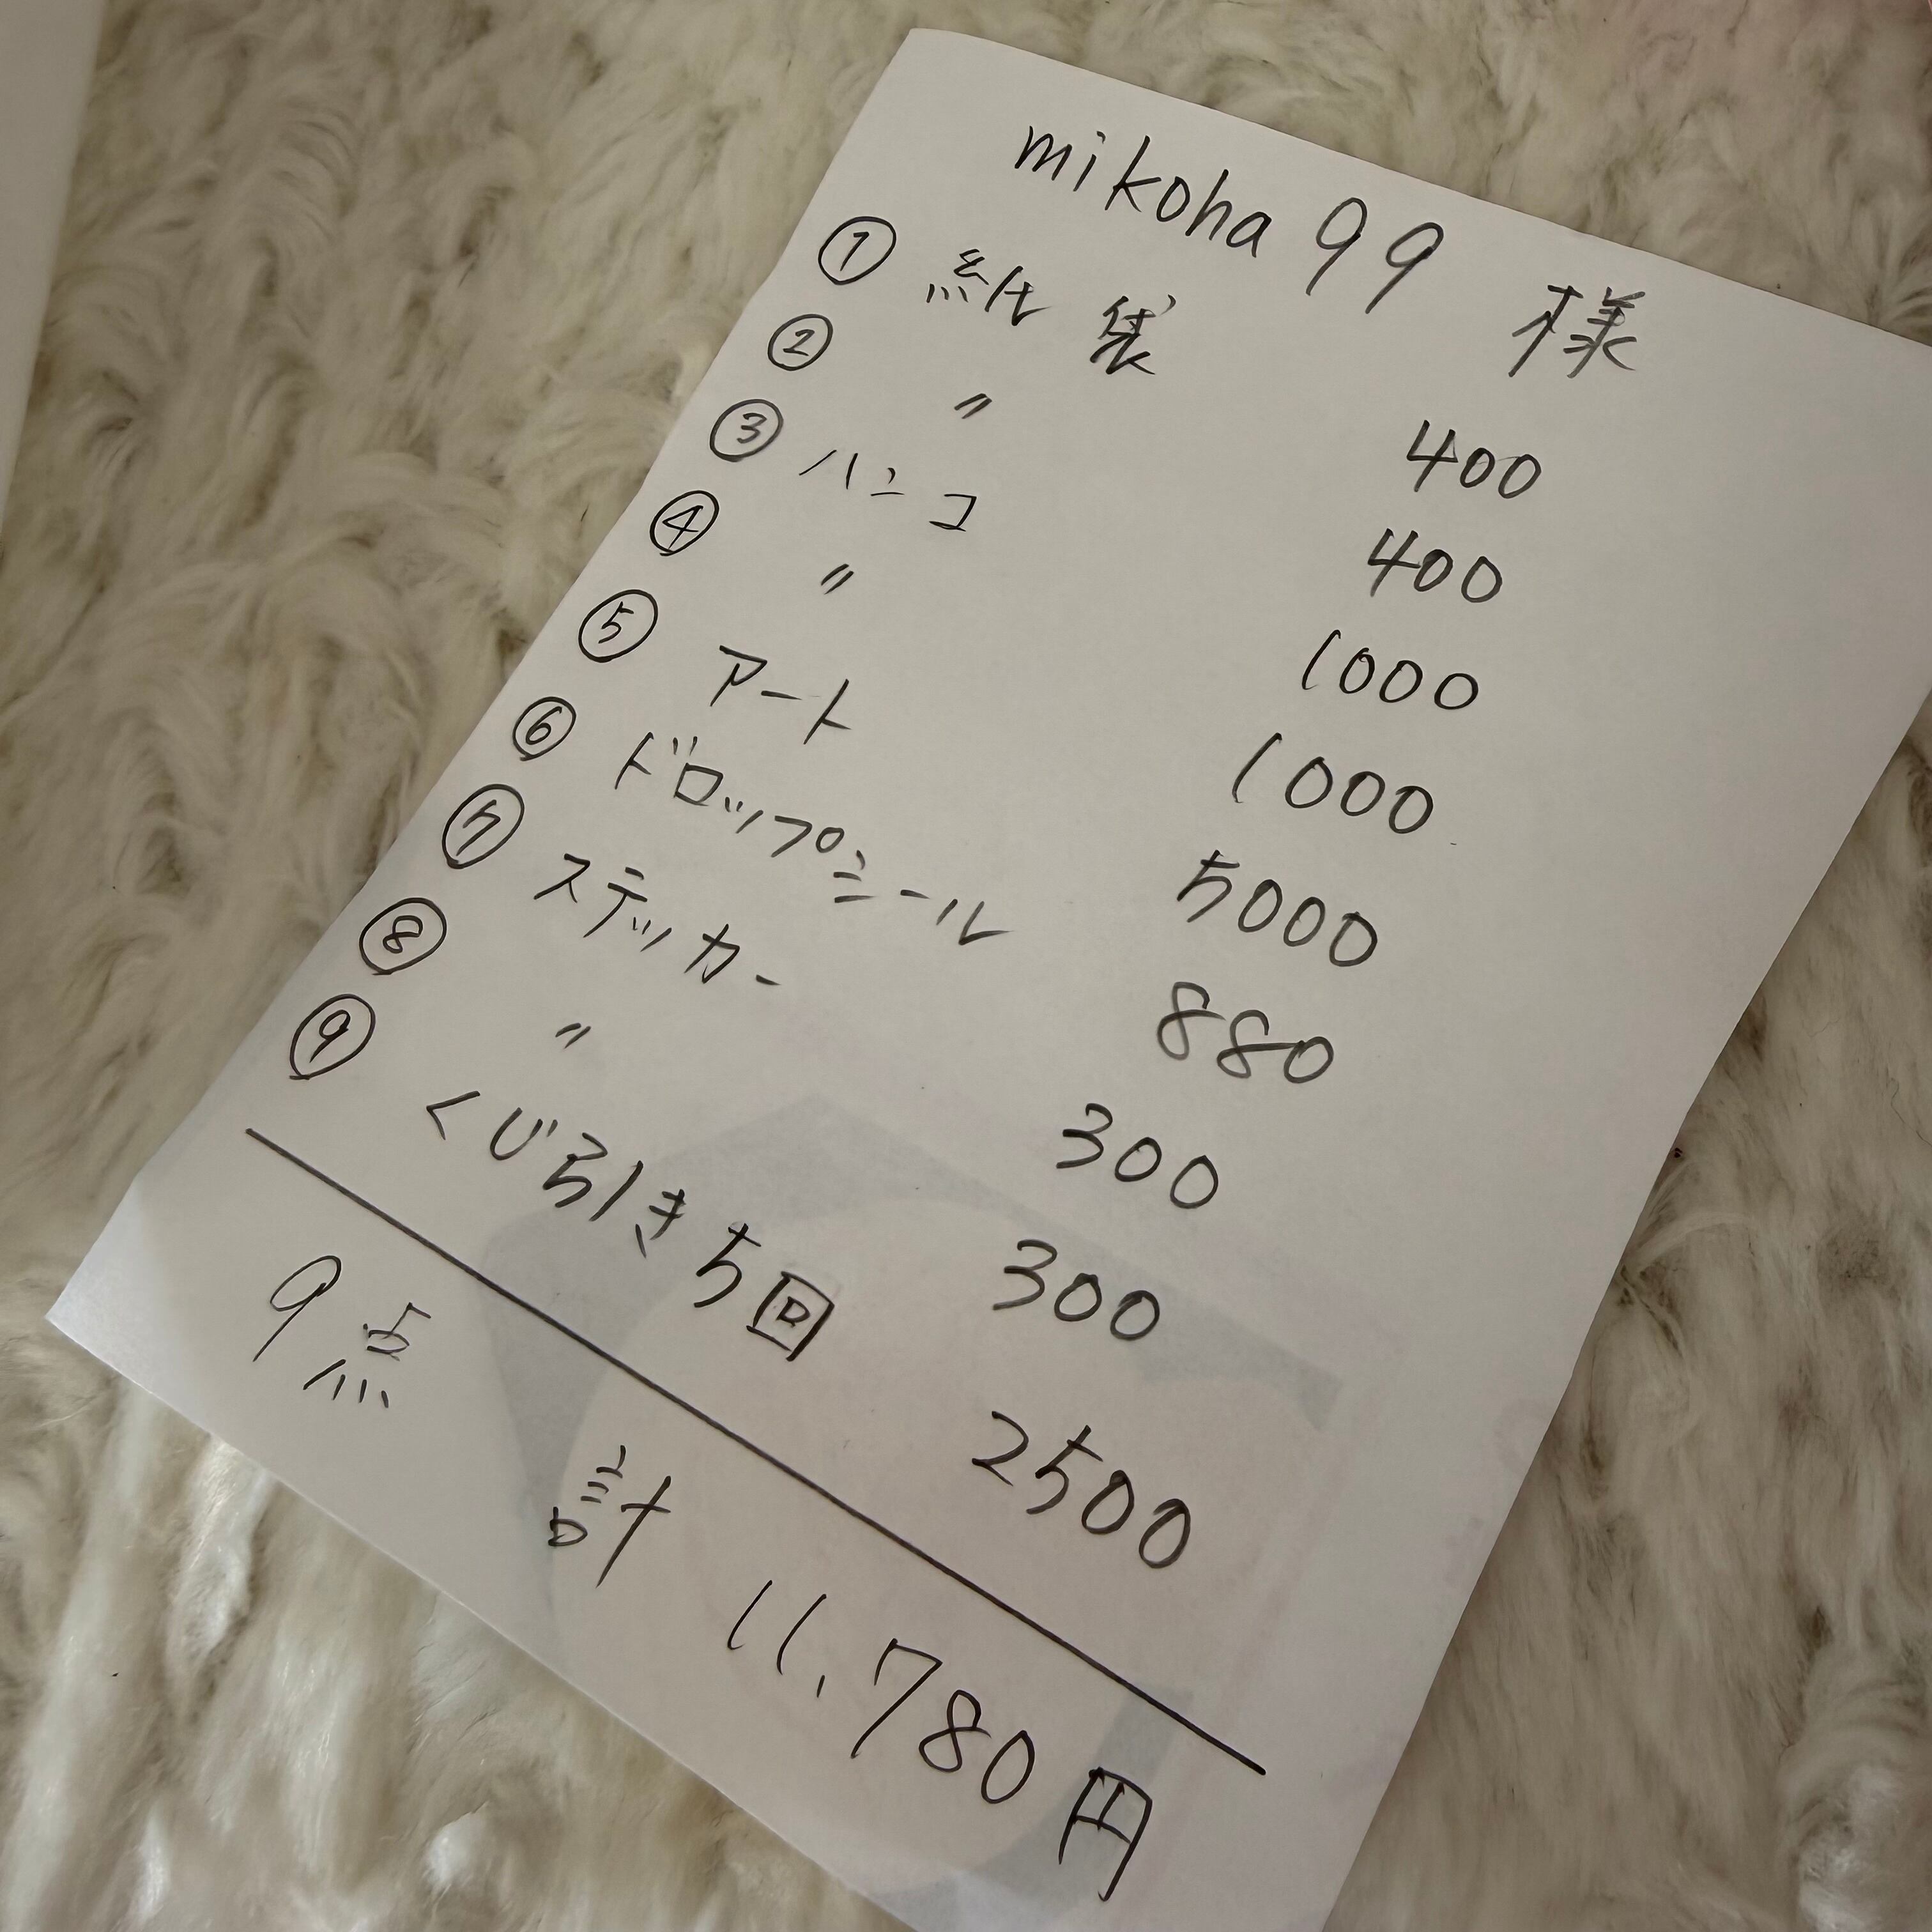 mikoha99 様
① 紙袋 400
② 〃 400
③ ハンコ 1000
④ 〃 1000
⑤ アート 5000
⑥ ドロップシール 880
⑦ ステッカー 300
⑧ 〃 300
⑨ くじ引き5回 2500
9点 計 11,780円